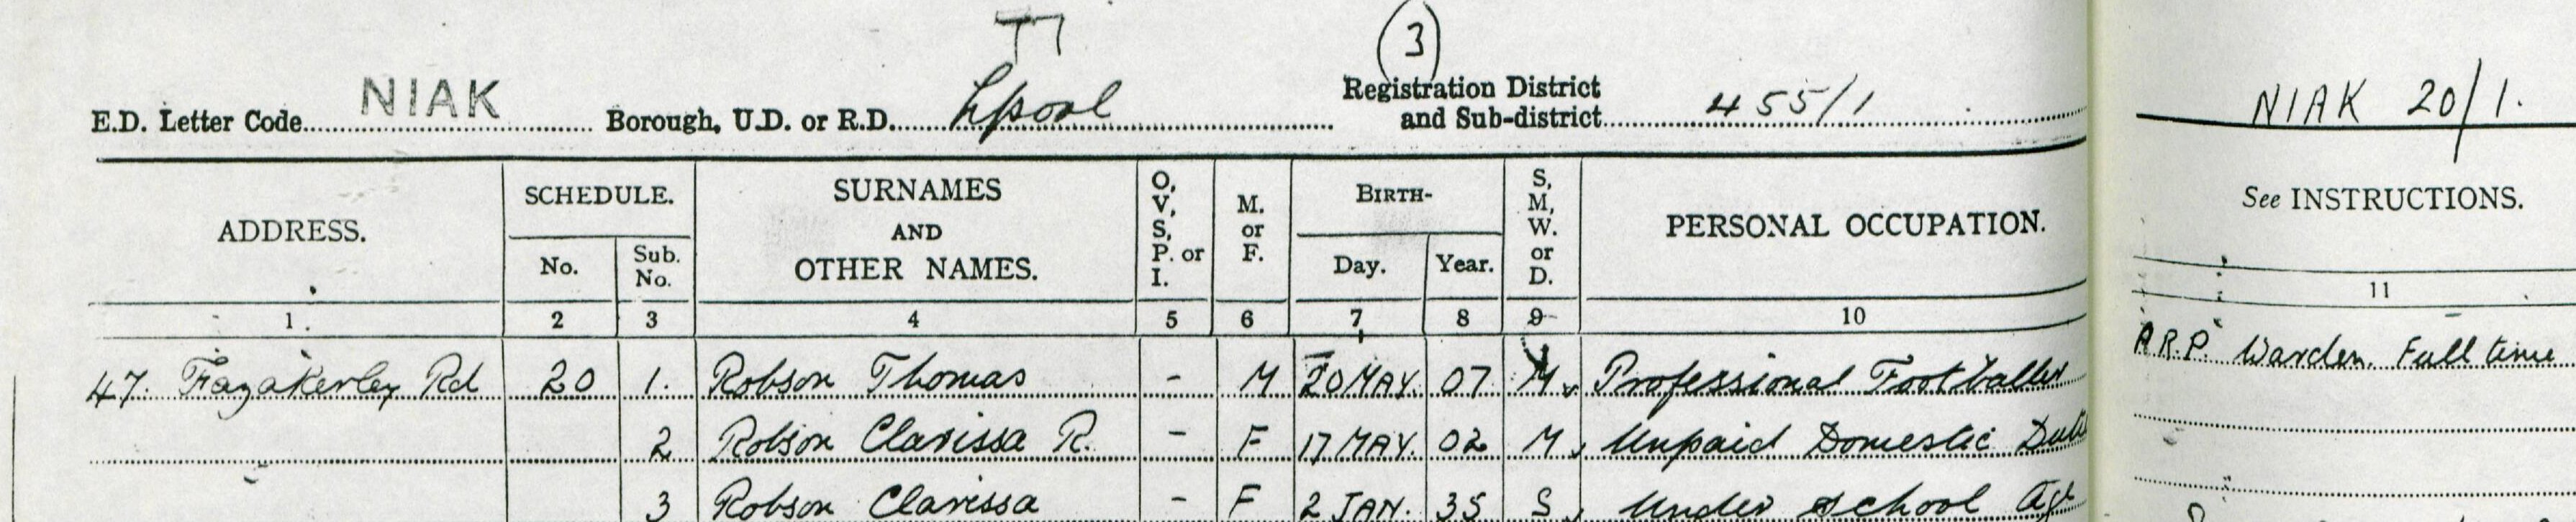 T7
(3)
E.D. Letter Code NIAK Borough, U.D. or R.D. Lpool Registration District and Sub-district 455/1
NIAK 20/1.
ADDRESS. SCHEDULE. No. Sub. No. SURNAMES AND OTHER NAMES. O, V, S, P. or I. M. or F. BIRTH- Day. Year. S, M, W. or D. PERSONAL OCCUPATION. See INSTRUCTIONS.
1. 2 3 4 5 6 7 8 9 10 11
47. Fazakerley Rd 20 1. Robson Thomas - M 20 MAY. 07 M Professional Footballer A.R.P. Warden. Full time
2 Robson Clarissa R. - F 17 MAY. 02 M Unpaid Domestic Duti
3 Robson Clarissa - F 2 JAN. 35 S Under School Ag